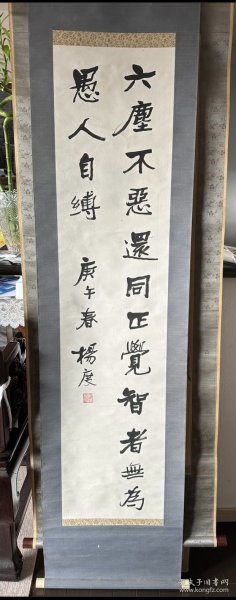 六塵不惡還同正覺智者無為
愚人自縛 庚午春 楊度
孔夫子旧书网
kongfz.com